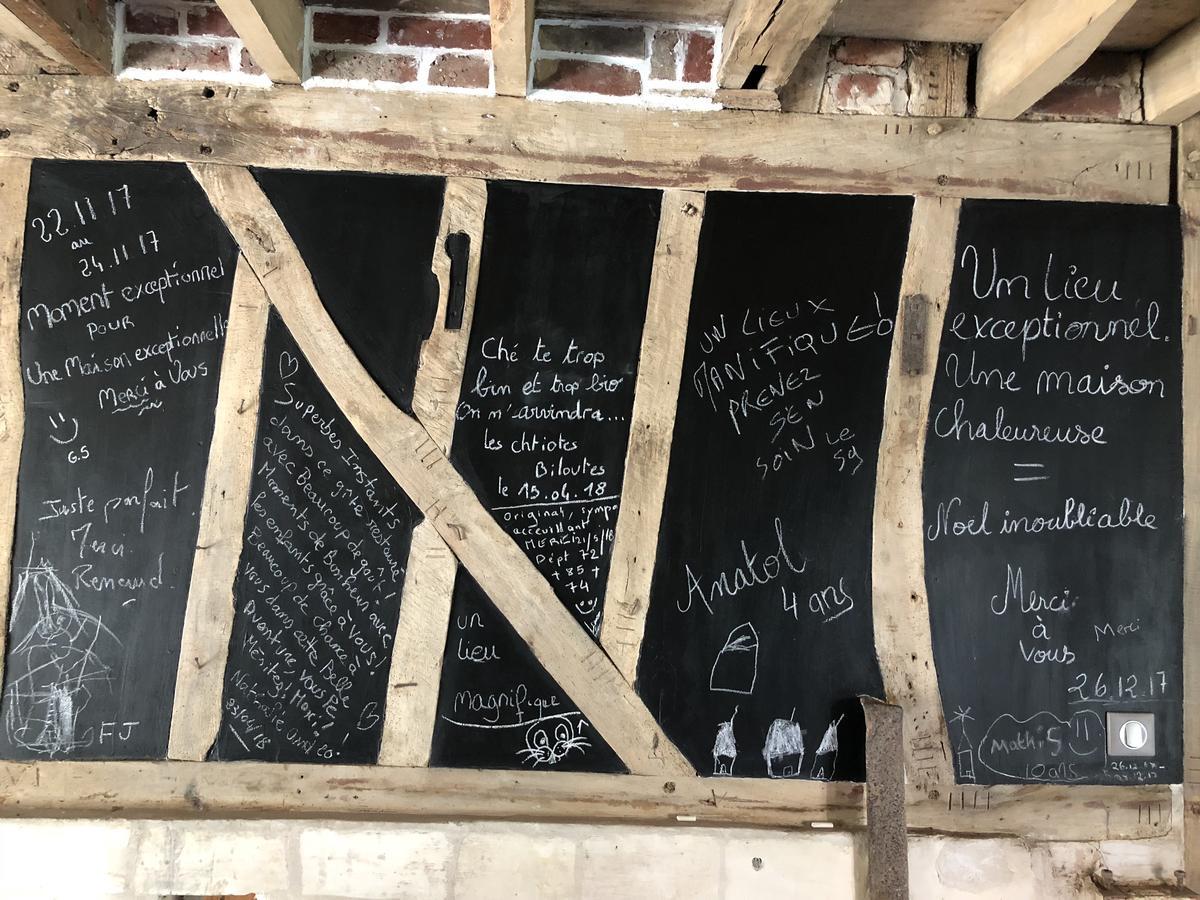 22.11 17
au
24.11 17
Moment exceptionnel
POUR
Une Maison exceptionnelle
Merci à Vous
G.S
Juste parfait.
Merci.
Renaud.
FJ
Superbes Instants
dans ce gîte restauré
avec Beaucoup de goût !
Moments de Bonheur avec
les enfants grâce à vous !
Beaucoup de chance à
vous dans cette Belle
Aventure, vous le
Méritez !
Nathalie
23/04/18
Ché te trop
bin et trop bio
On n'arvindra...
les chtiotes
Biloutes
le 15.04.18
original, sympa
accueillant
MERCI
Dépt 72
+ 85 +
74
un
lieu
magnifique
UN LIEUX
MANIFIQUE !
PRENEZ
SEN
SOIN LE
59
Anatol
4 ans
Un lieu
exceptionnel.
Une maison
Chaleureuse
=
Noël inoubliable
Merci
à
vous
Merci
26.12.17
Mathis
10 ans